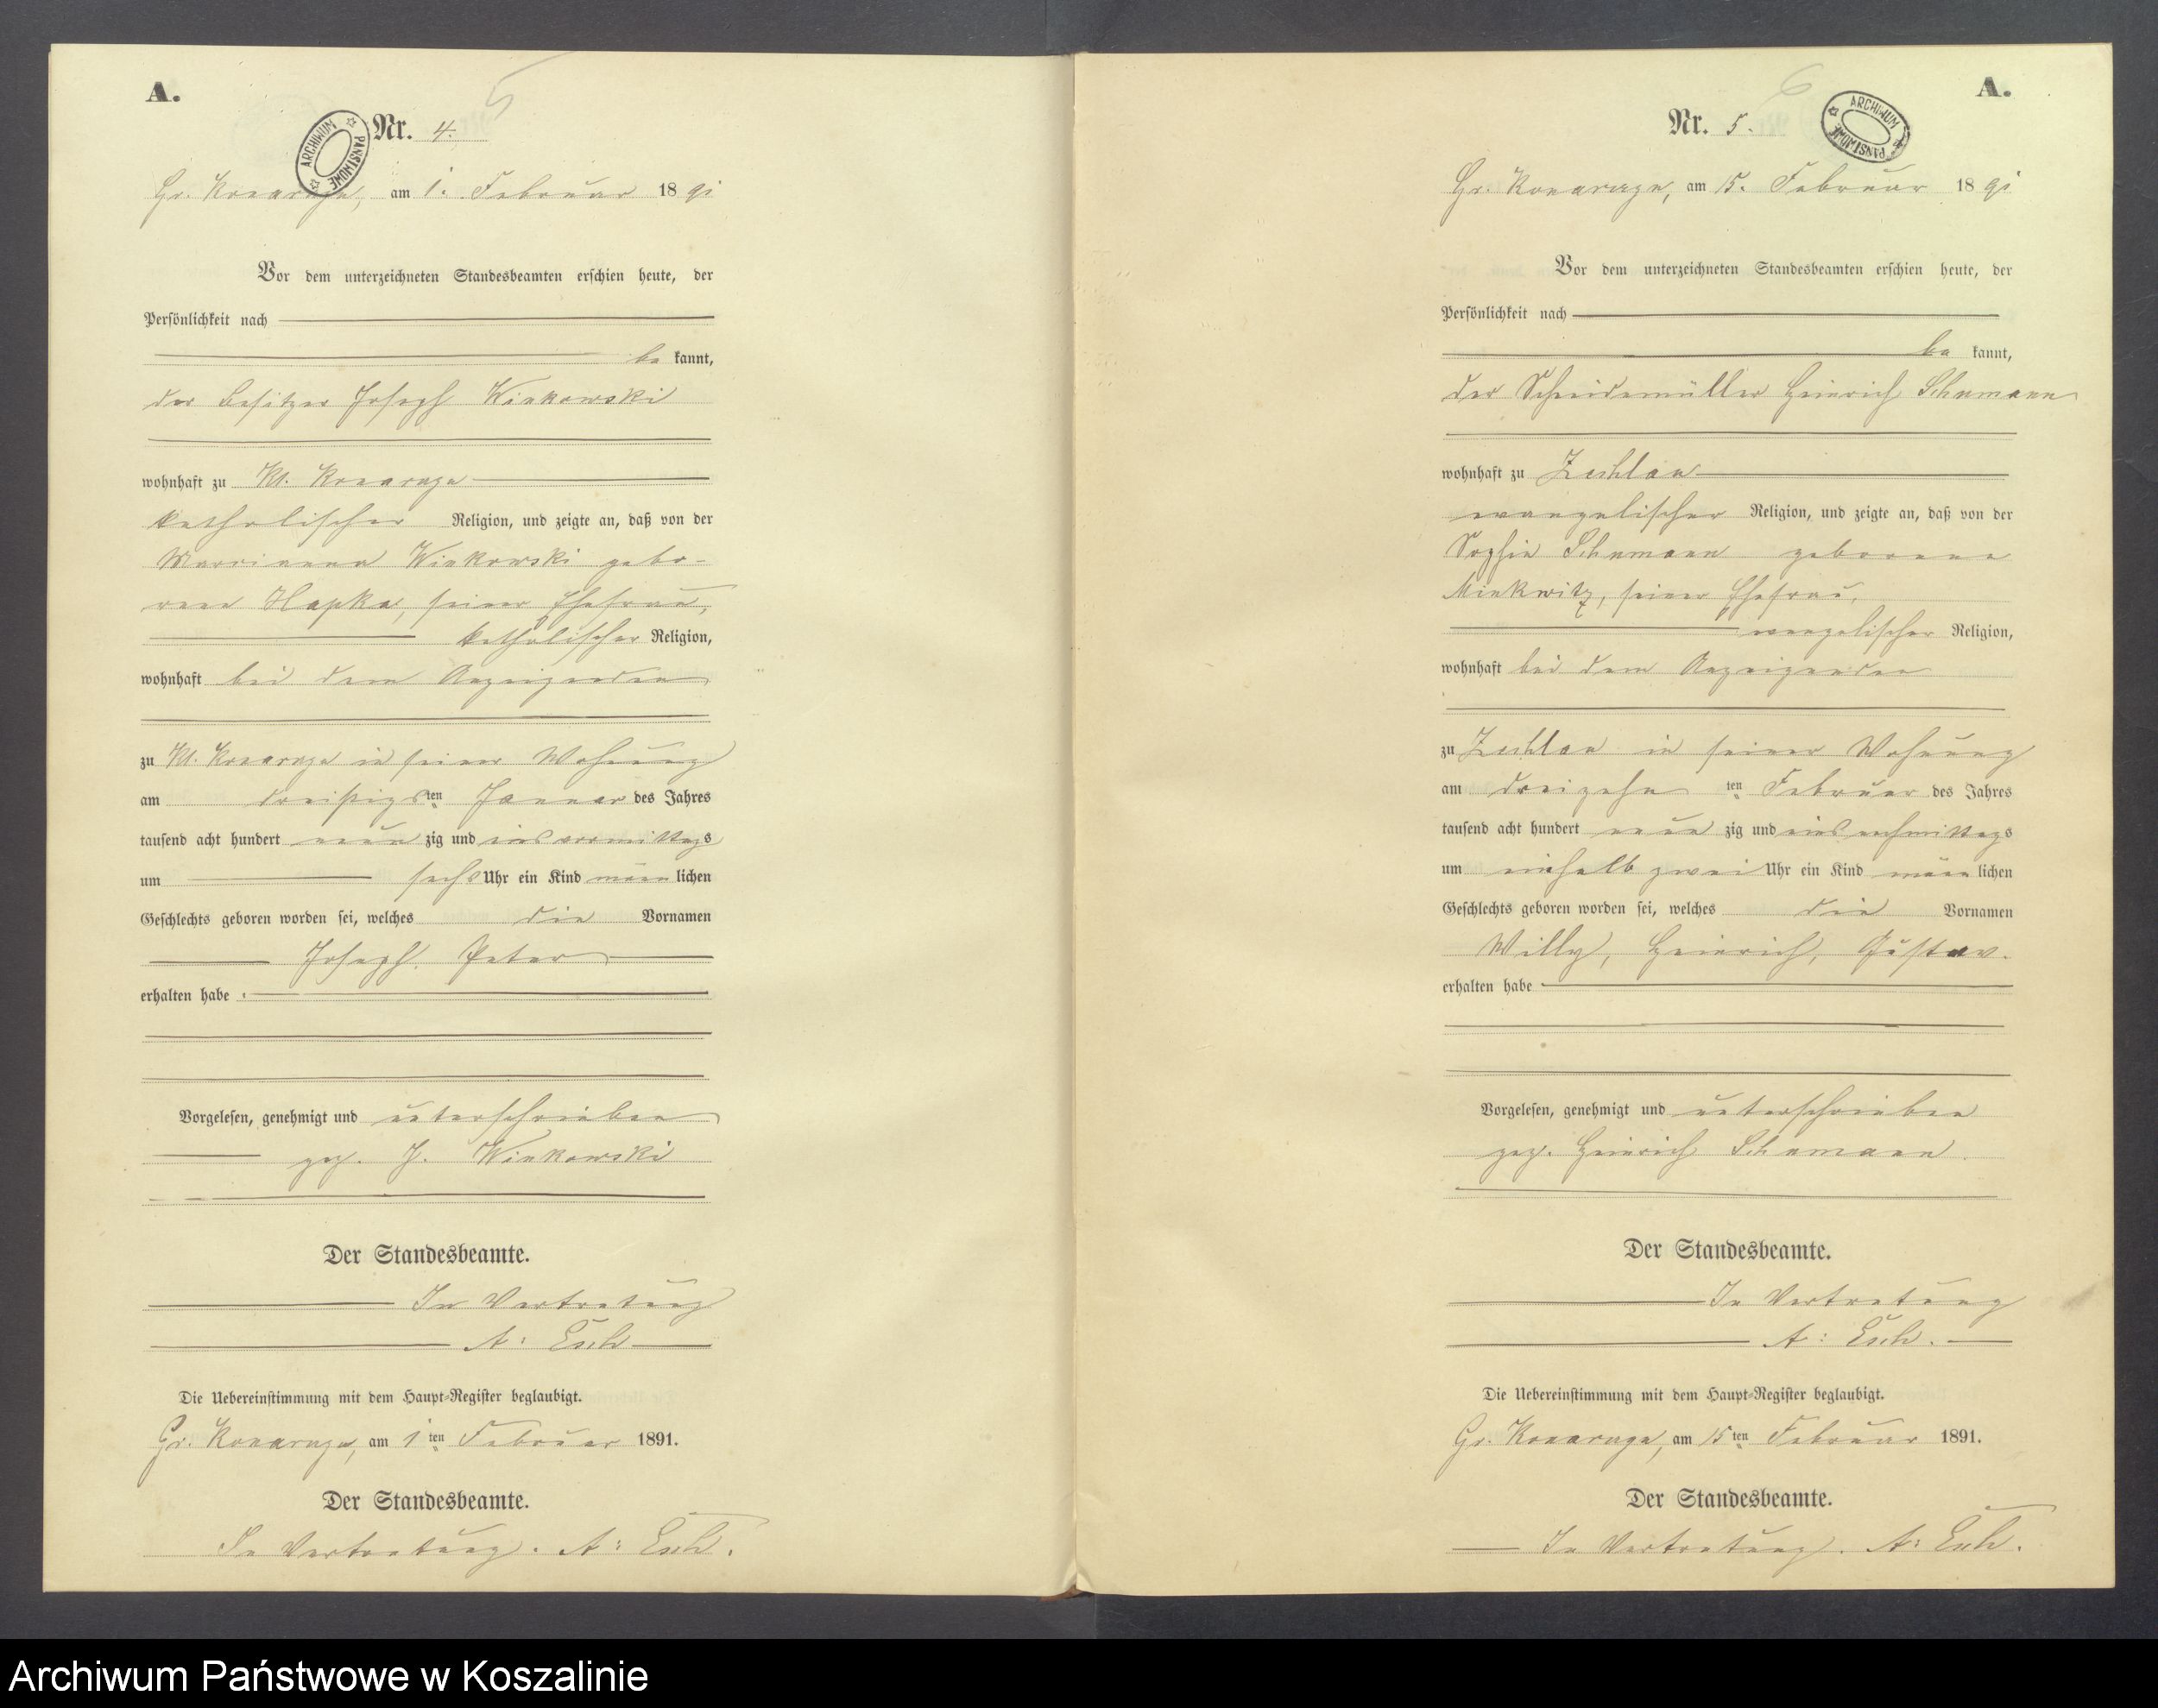 A.
Nr. 4.
ARCHIWUM PAŃSTWOWE
Gr. Konarczyn, am 1. Februar 1891
Vor dem unterzeichneten Standesbeamten erschien heute, der
Persönlichkeit nach
be kannt,
der Besitzer Joseph Winkowski
wohnhaft zu Kl. Konarczyn
katholischer Religion, und zeigte an, daß von der
Marrianna Winkowski gebo-
rene Hapka, seiner Ehefrau,
katholischer Religion,
wohnhaft bei dem Anzeigenden
zu Kl. Konarczyn in seiner Wohnung
am dreißigsten Januar des Jahres
tausend acht hundert neun zig und eins vormittags
um sechs Uhr ein Kind männ lichen
Geschlechts geboren worden sei, welches die Vornamen
Joseph Peter
erhalten habe.
Vorgelesen, genehmigt und unterschrieben
gez. J. Winkowski
Der Standesbeamte.
In Vertretung
A:
Die Uebereinstimmung mit dem Haupt-Register beglaubigt.
Gr. Konarczyn, am 1ten Februar 1891.
Der Standesbeamte.
In Vertretung. A:
A.
Nr. 5.
ARCHIWUM PAŃSTWOWE
6
Gr. Konarczyn, am 15. Februar 1891
Vor dem unterzeichneten Standesbeamten erschien heute, der
Persönlichkeit nach
be kannt,
der Schneidemüller Heinrich Schumann
wohnhaft zu Zechlau
evangelischer Religion, und zeigte an, daß von der
Sophie Schumann geborene
Minkwitz, seiner Ehefrau,
evangelischer Religion,
wohnhaft bei dem Anzeigenden
zu Zechlau in seiner Wohnung
am dreizehn ten Februar des Jahres
tausend acht hundert neun zig und eins nachmittags
um einhalb zwei Uhr ein Kind männ lichen
Geschlechts geboren worden sei, welches die Vornamen
Willy, Heinrich, Gustav.
erhalten habe
Vorgelesen, genehmigt und unterschrieben
gez. Heinrich Schumann.
Der Standesbeamte.
In Vertretung
A:
Die Uebereinstimmung mit dem Haupt-Register beglaubigt.
Gr. Konarczyn, am 15ten Februar 1891.
Der Standesbeamte.
In Vertretung. A:
Archiwum Państwowe w Koszalinie